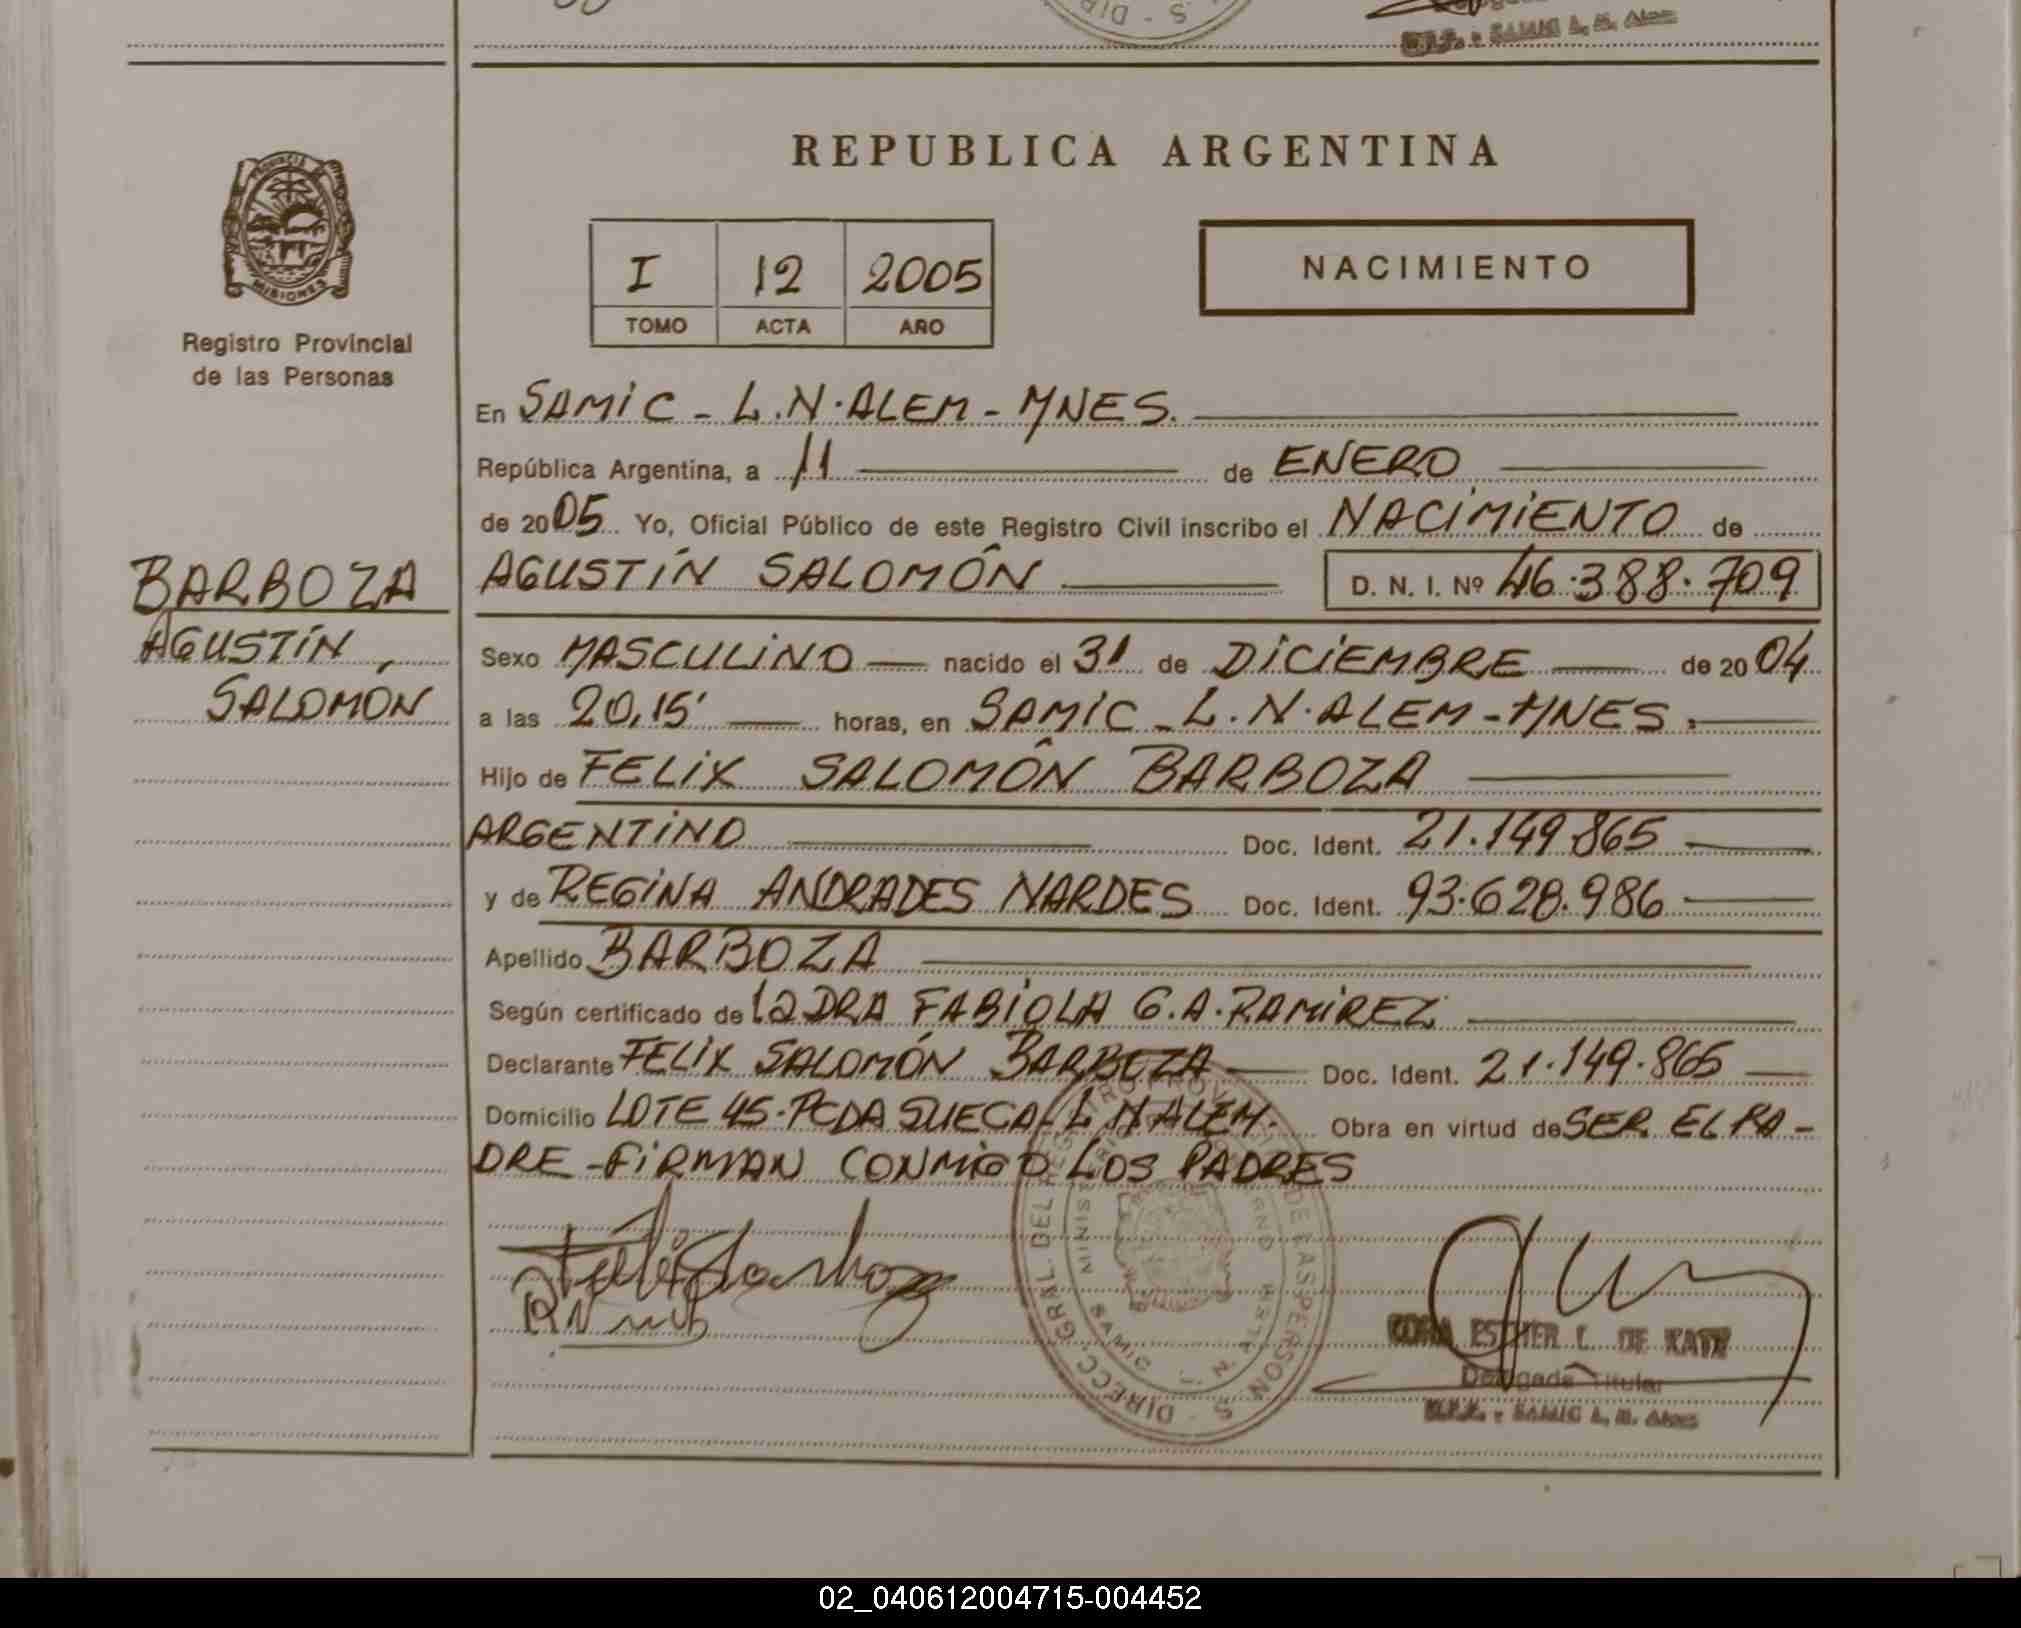 S. - DIR
L. N. Alem
REPUBLICA ARGENTINA
PROVINCIA
MISIONES
Registro Provincial
de las Personas
I 12 2005
TOMO ACTA AÑO
NACIMIENTO
En SAMIC - L.N. ALEM - MNES.
República Argentina, a 11 de ENERO
de 2005 Yo, Oficial Público de este Registro Civil inscribo el NACIMIENTO de
AGUSTÍN SALOMÓN D. N. I. Nº 46.388.709
BARBOZA
AGUSTÍN,
SALOMÓN
Sexo MASCULINO nacido el 31 de DICIEMBRE de 2004
a las 20,15' horas, en SAMIC - L.N. ALEM - MNES.
Hijo de FELIX SALOMÓN BARBOZA
ARGENTINO Doc. Ident. 21.149.865
y de REGINA ANDRADES NARDES Doc. Ident. 93.628.986
Apellido BARBOZA
Según certificado de la DRA FABIOLA G.A. RAMIREZ
Declarante FELIX SALOMÓN BARBOZA Doc. Ident. 21.149.865
Domicilio LOTE 45 - PCDA SUECA - L N ALEM. Obra en virtud de SER EL PA-
DRE - FIRMAN CONMIGO LOS PADRES
DIRECC. GRAL. DEL REGISTRO PROV. DE LAS PERSONAS
SAMIC L. N. ALEM
ESTHER L. DE KATZ
Delegada Titular
SAMIC L. N. Alem
02_040612004715-004452